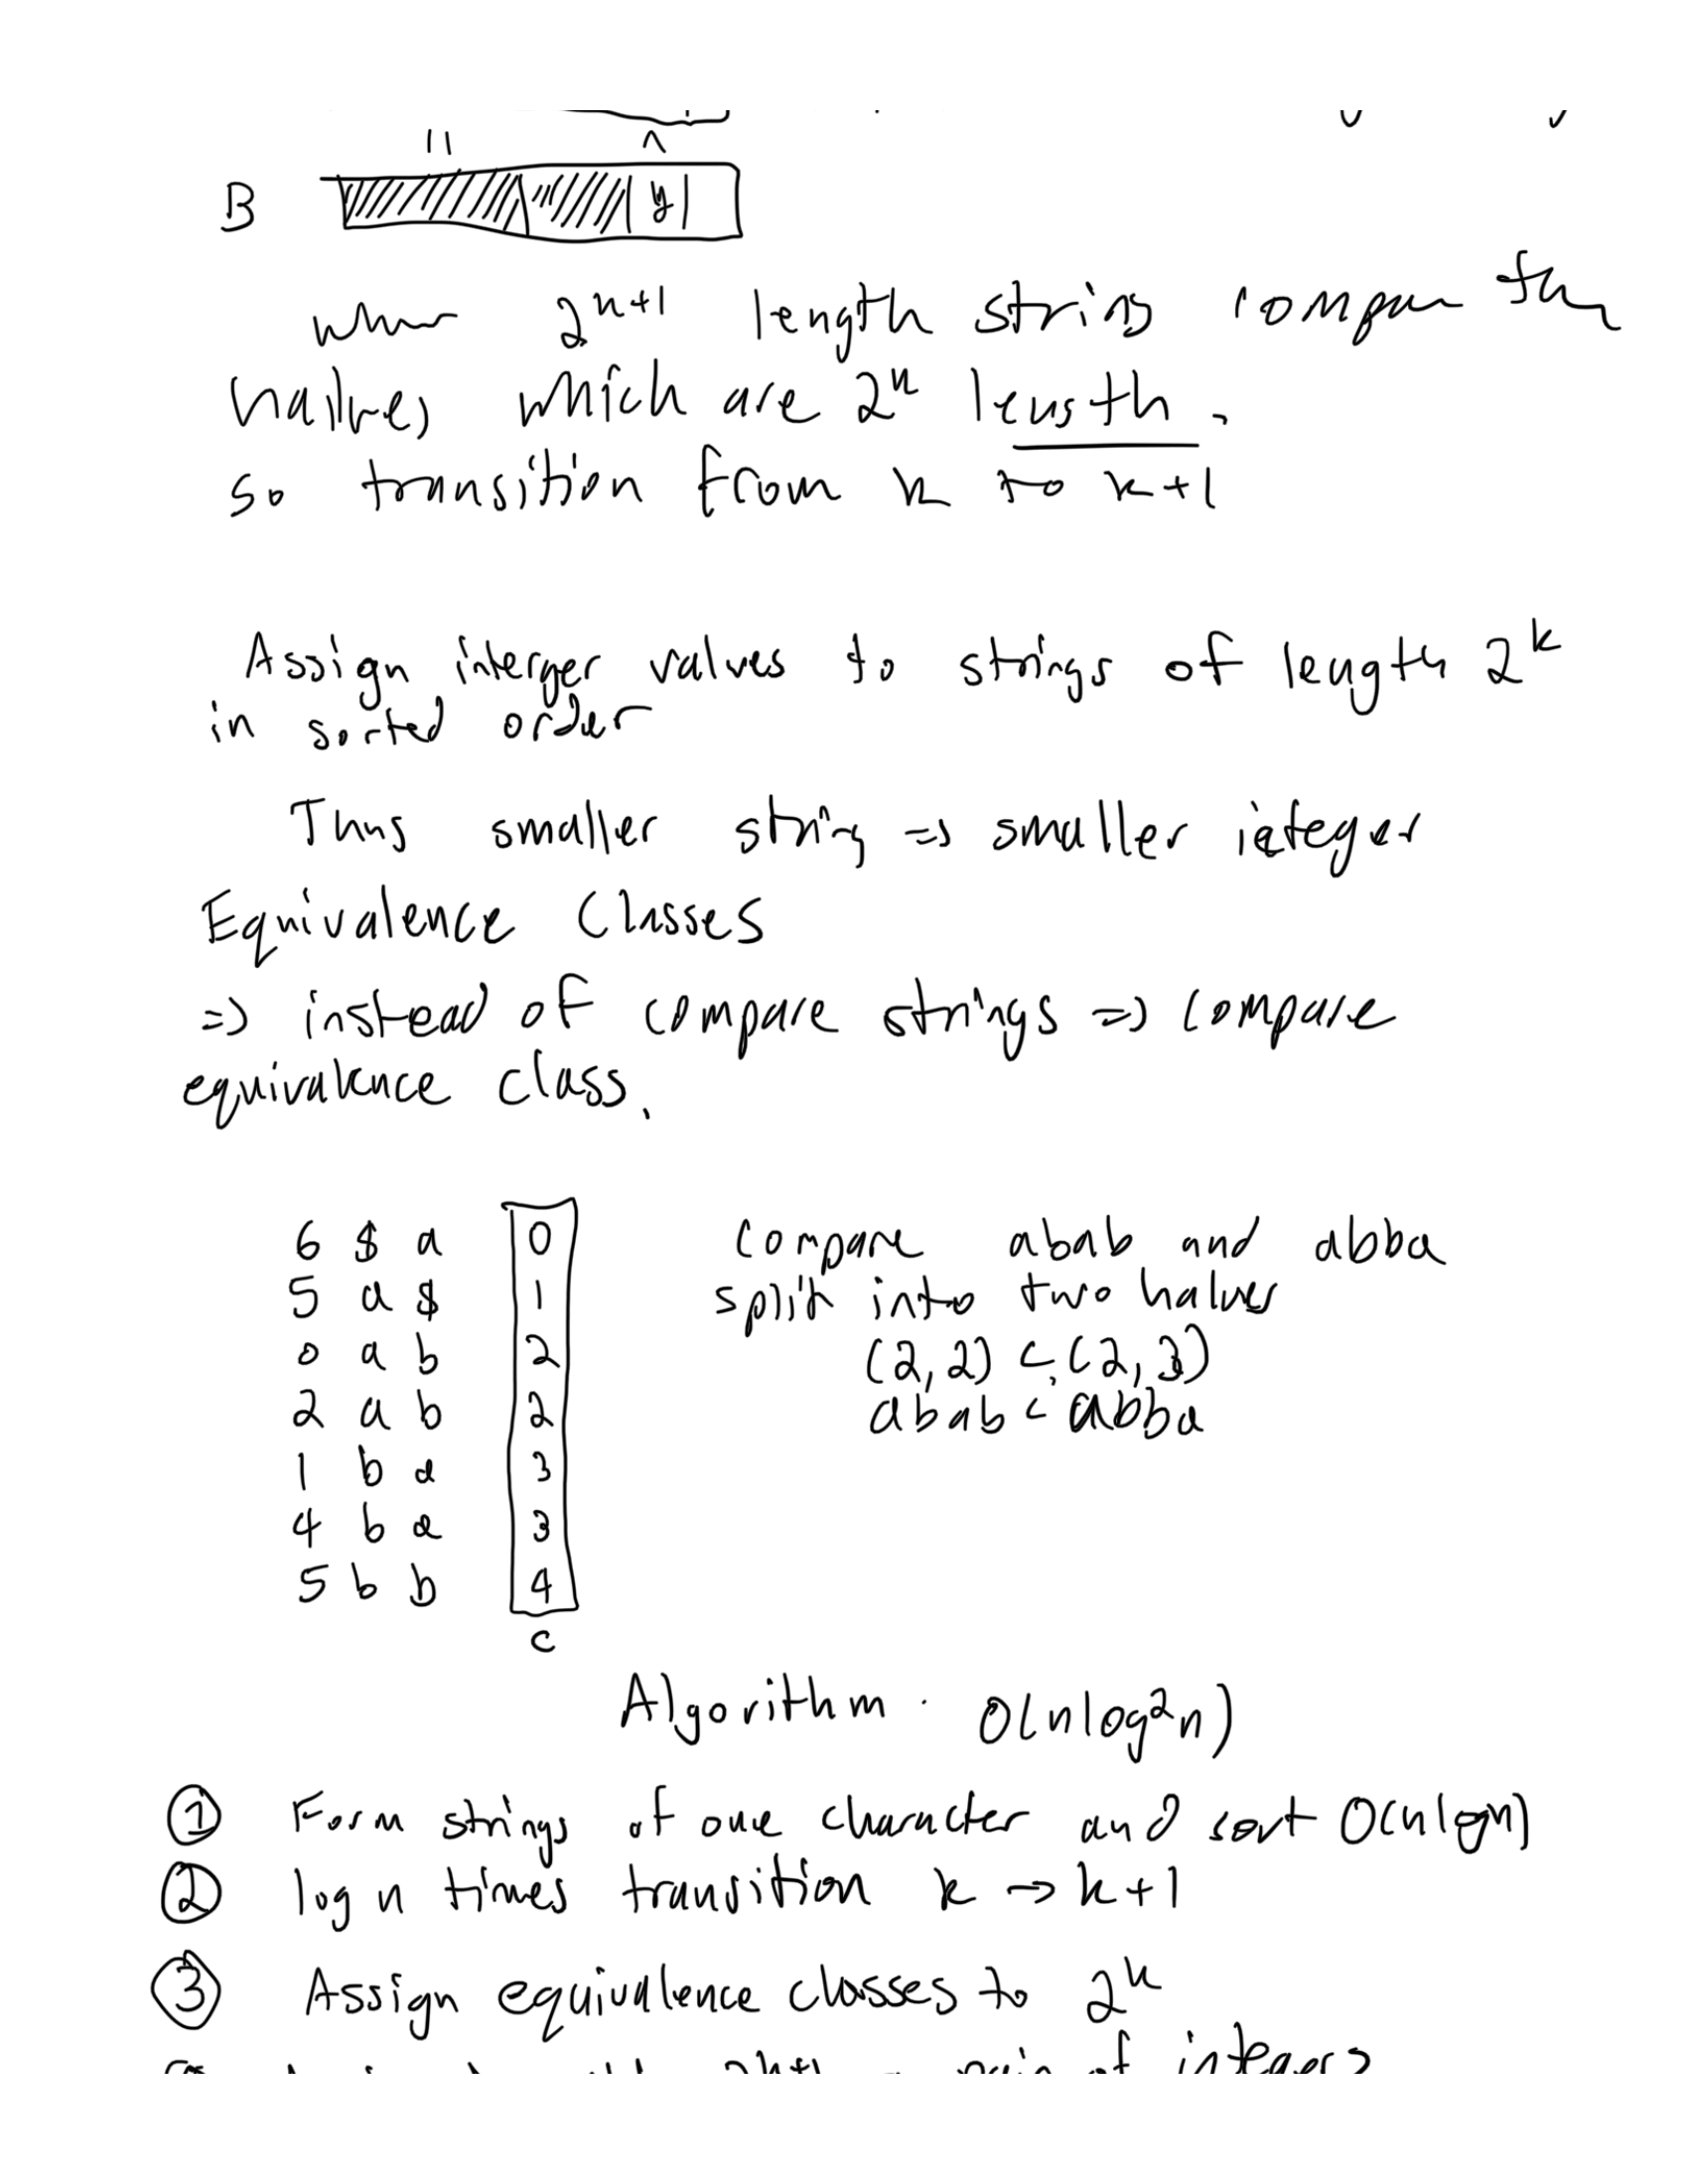 ||
^
B y
when 2^k+1 length string compare the
halves which are 2^k length.
so transition from k to k+1
Assign interger values to strings of length 2^k
in sorted order
Thus smaller string => smaller integer
Equivalence Classes
=> instead of compare strings => compare
equivalence class.
6 $ a 0 compare abab and abba
5 a $ 1 split into two halves
0 a b 2 (2,2) < (2,3)
2 a b 2 abab < abba
1 b a 3
4 b a 3
5 b b 4
c
Algorithm. O(nlog^2n)
① Form strings of one character and sort O(nlogn)
② log n times transition k -> k+1
③ Assign equivalence classes to 2^k
pair of integers